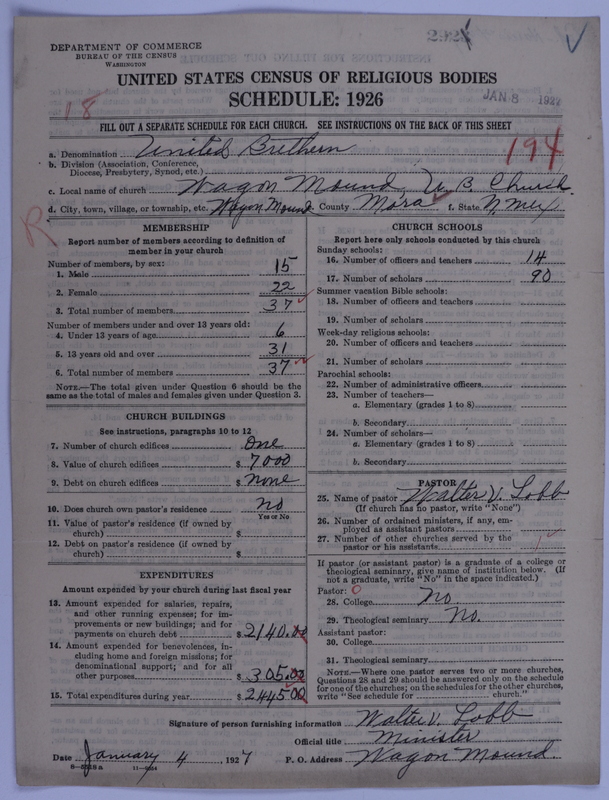 DEPARTMENT OF COMMERCE
BUREAU OF THE CENSUS
WASHINGTON
UNITED STATES CENSUS OF RELIGIOUS BODIES
SCHEDULE: 1926
JAN 8 1927
18
FILL OUT A SEPARATE SCHEDULE FOR EACH CHURCH. SEE INSTRUCTIONS ON THE BACK OF THIS SHEET
194
a. Denomination United Brethern
b. Division (Association, Conference, Diocese, Presbytery, Synod, etc.)
c. Local name of church Wagon Mound U. B. Church.
d. City, town, village, or township, etc. Wagon Mound County Mora f. State N. Mex.
R
MEMBERSHIP
Report number of members according to definition of member in your church
Number of members, by sex:
1. Male 15
2. Female 22
3. Total number of members 37
Number of members under and over 13 years old:
4. Under 13 years of age 6
5. 13 years old and over 31
6. Total number of members 37
NOTE.—The total given under Question 6 should be the same as the total of males and females given under Question 3.
CHURCH BUILDINGS
See instructions, paragraphs 10 to 12
7. Number of church edifices One
8. Value of church edifices $ 7000
9. Debt on church edifices $ None
10. Does church own pastor's residence No
Yes or No
11. Value of pastor's residence (if owned by church) $
12. Debt on pastor's residence (if owned by church) $
EXPENDITURES
Amount expended by your church during last fiscal year
13. Amount expended for salaries, repairs, and other running expenses; for improvements or new buildings; and for payments on church debt $ 2140.00
14. Amount expended for benevolences, including home and foreign missions; for denominational support; and for all other purposes $ 305.00
15. Total expenditures during year $ 2445 00
CHURCH SCHOOLS
Report here only schools conducted by this church
Sunday schools:
16. Number of officers and teachers 14
17. Number of scholars 90
Summer vacation Bible schools:
18. Number of officers and teachers
19. Number of scholars
Week-day religious schools:
20. Number of officers and teachers
21. Number of scholars
Parochial schools:
22. Number of administrative officers
23. Number of teachers—
a. Elementary (grades 1 to 8)
b. Secondary
24. Number of scholars—
a. Elementary (grades 1 to 8)
b. Secondary
PASTOR
25. Name of pastor Walter V. Lobb
(If church has no pastor, write "None")
26. Number of ordained ministers, if any, employed as assistant pastors
27. Number of other churches served by the pastor or his assistants
If pastor (or assistant pastor) is a graduate of a college or theological seminary, give name of institution below. (If not a graduate, write "No" in the space indicated.)
Pastor: 0
28. College No
29. Theological seminary No.
Assistant pastor:
30. College
31. Theological seminary
NOTE.—Where one pastor serves two or more churches, Questions 28 and 29 should be answered only on the schedule for one of the churches; on the schedules for the other churches, write "See schedule for church."
Signature of person furnishing information Walter V. Lobb
Official title Minister
Date January 4, 1927 P. O. Address Wagon Mound.